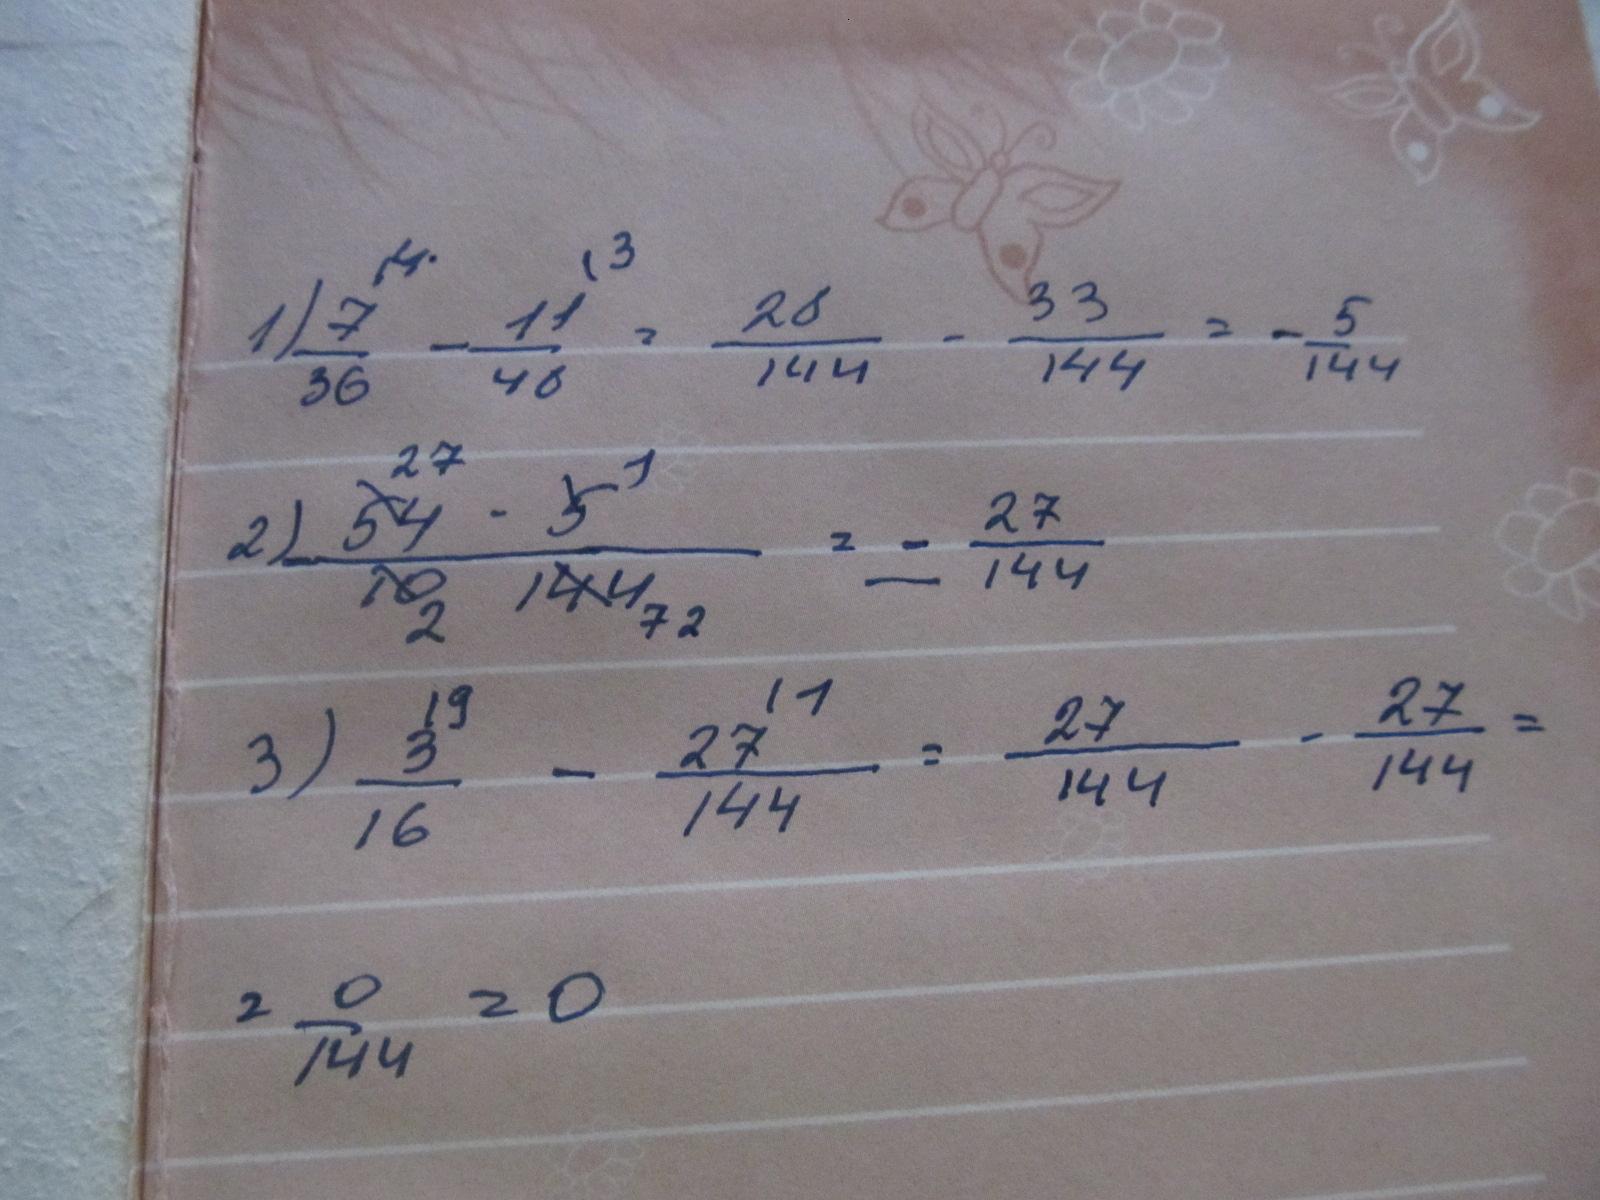 1) 7/36 ^(4 - 11/48 ^(3 = 28/144 - 33/144 = - 5/144
2) 54 ^27 · 5 ^1 / 10 _2 144 _72 = - 27/144
3) 3/16 ^(9 - 27/144 ^(1 = 27/144 - 27/144 =
= 0/144 = 0